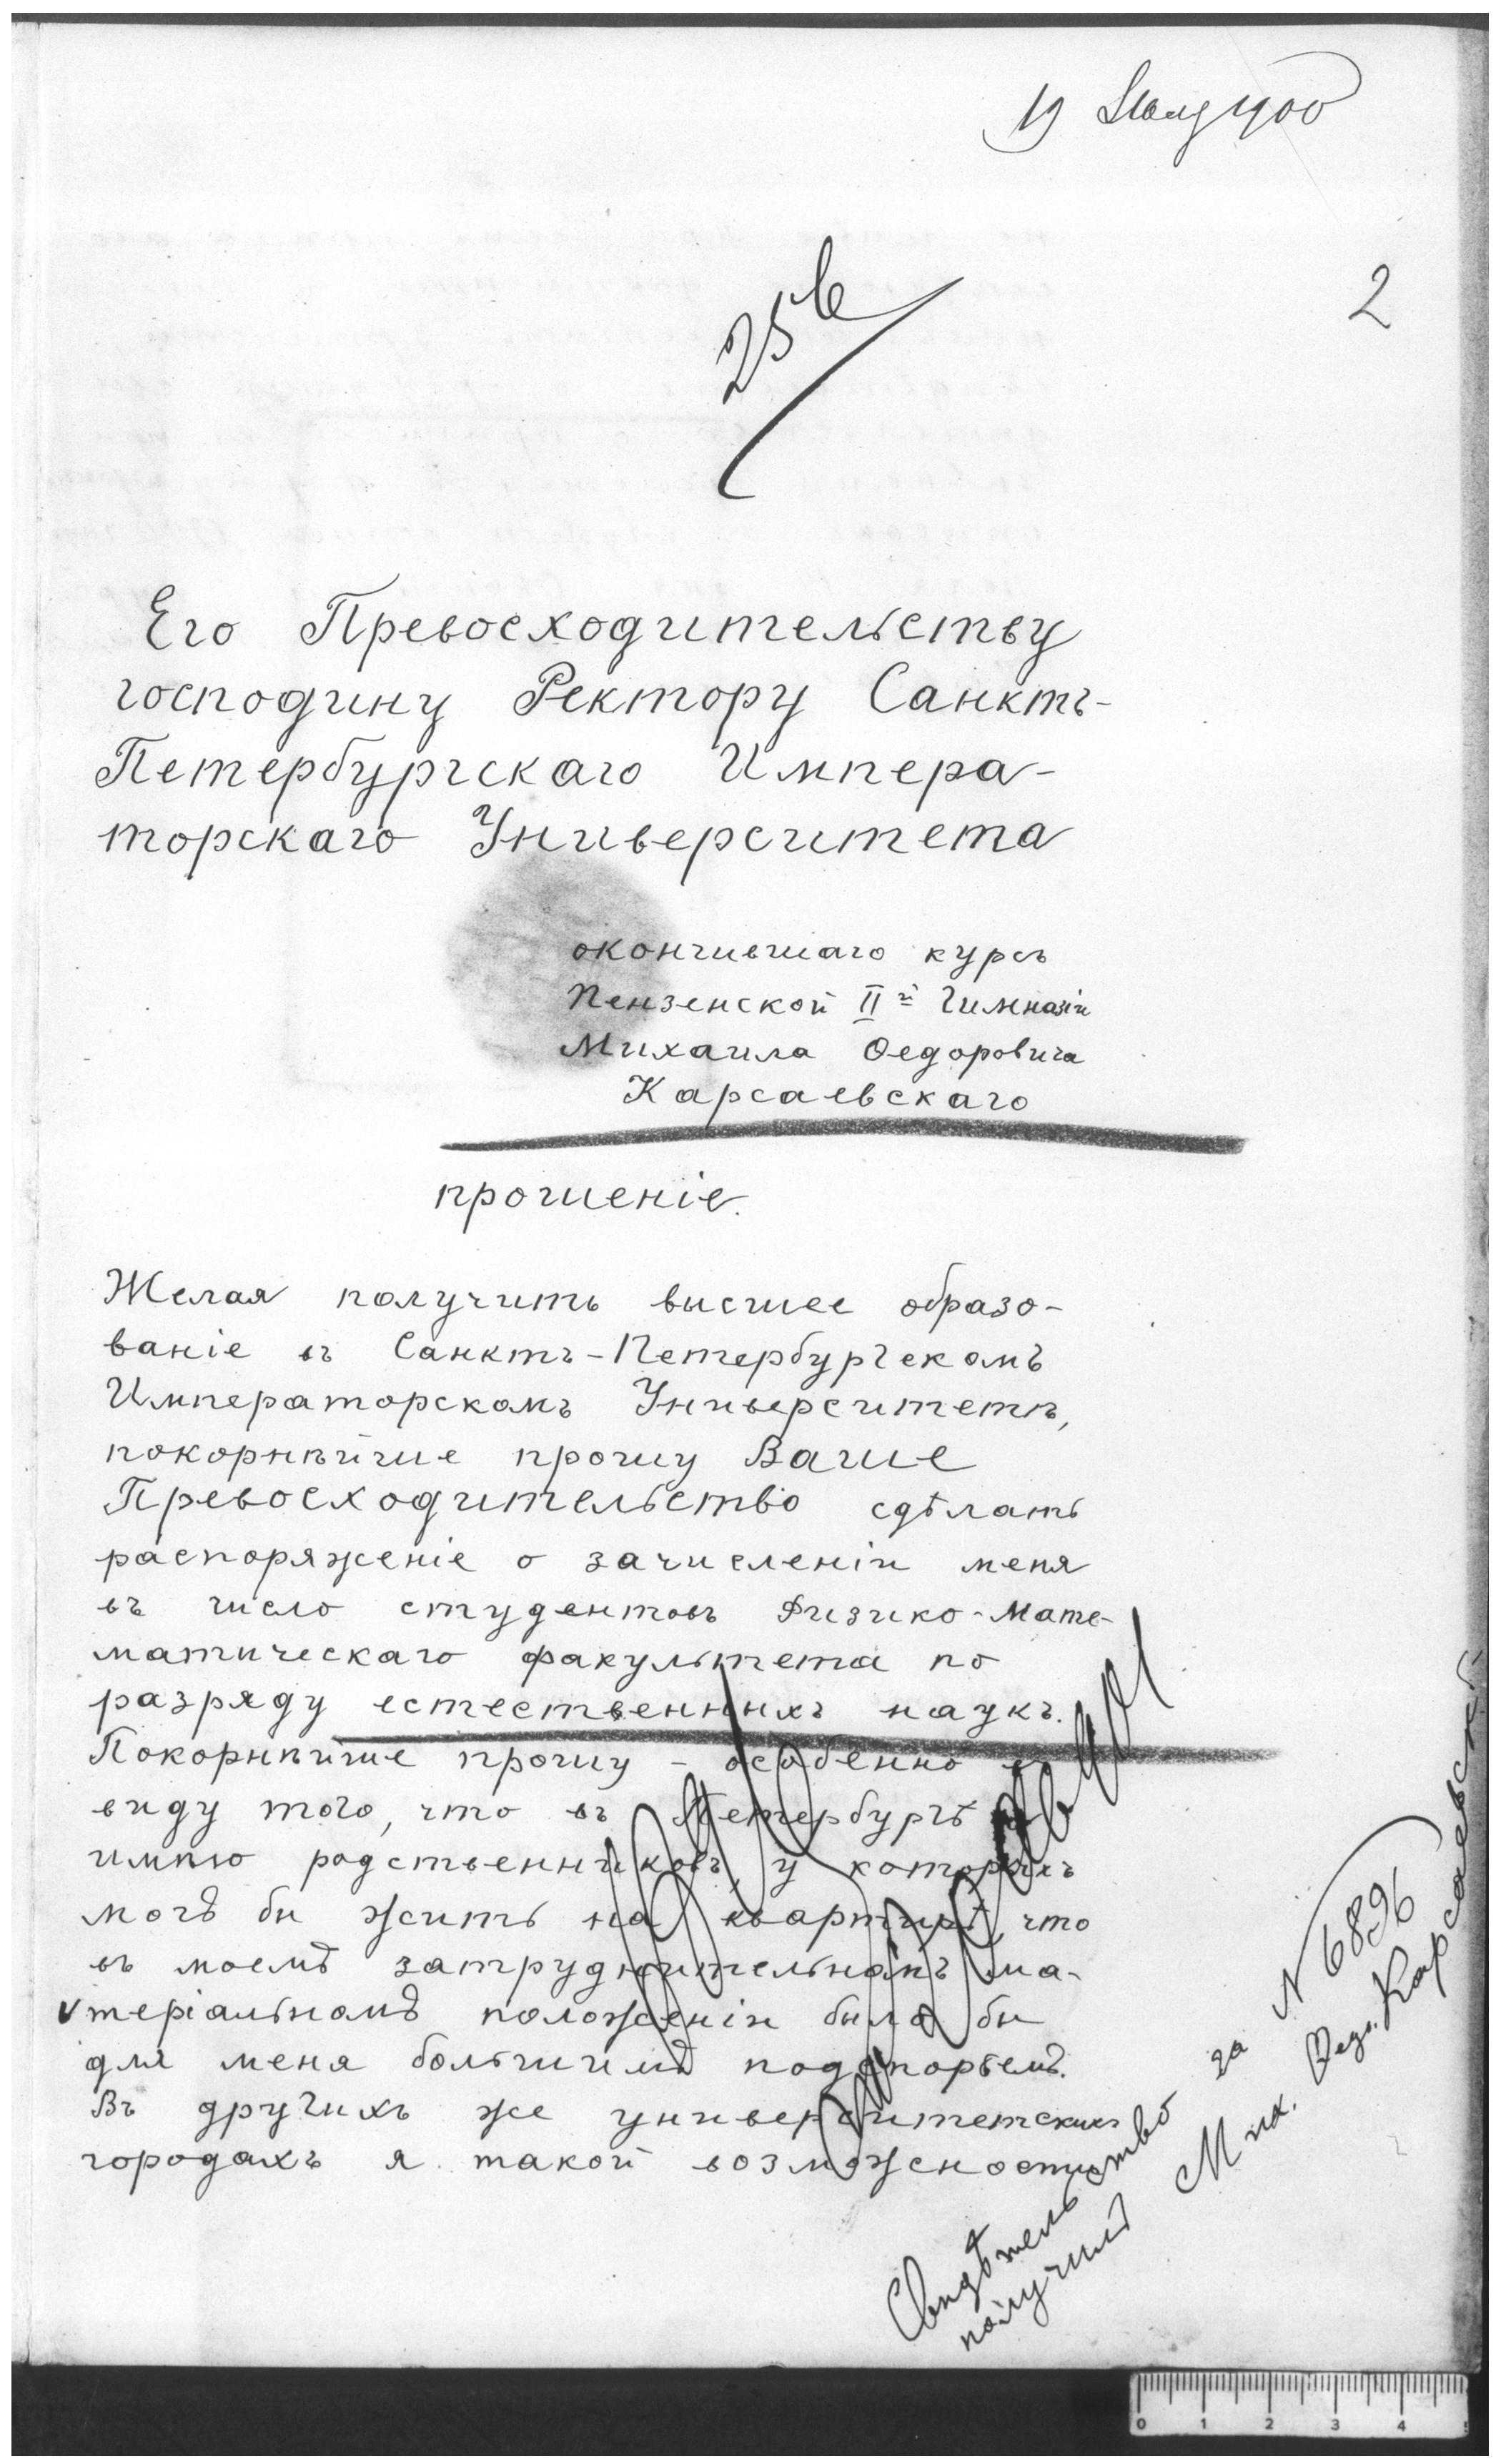 19
2
25
Его Превосходительству
господину Ректору Санктъ-
Петербургскаго Импера-
торскаго Университета
окончившаго курсъ
Пензенской IIй Гимназіи
Михаила Ѳедоровича
Карсаевскаго
прошеніе.
Желая получить высшее образо-
ваніе въ Санктъ-Петербургскомъ
Императорскомъ Университетѣ,
покорнѣйше прошу Ваше
Превосходительство сдѣлать
распоряженіе о зачисленіи меня
въ число студентовъ Физико-Мате-
матическаго факультета по
разряду естественныхъ наукъ.
Покорнѣйше прошу - особенно въ
виду того, что въ Петербургѣ я
имѣю родственниковъ, у которыхъ
могъ бы жить на квартирѣ, что
въ моемъ затруднительномъ ма-
теріальномъ положеніи было бы
для меня большимъ подспорьемъ.
Въ другихъ же университетскихъ
городахъ я такой возможности
Свидѣтельство за № 6896
получилъ Мих. Ѳед. Карсаевскій
0 1 2 3 4 5